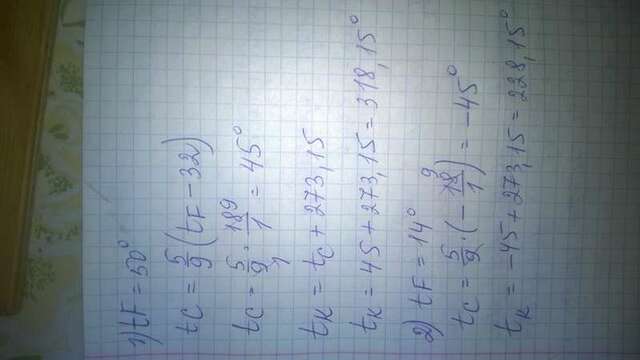 1) tF = 50°
tC = 5/9 (tF - 32)
tC = 5/9 · 18/1 = 45°
tK = tC + 273,15
tK = 45 + 273,15 = 318,15°
2) tF = 14°
tC = 5/9 · (- 18/1) = -45°
tK = -45 + 273,15 = 228,15°